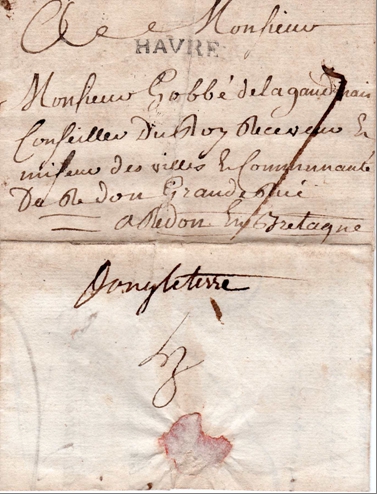 A Monsieur
HAVRE
Monsieur Gobbé de la gaudinais
Conseiller Du Roy Receveur Et
miseur des villes Et Communauté
De Redon Grande Rue
a Redon En Bretagne
7
D'angleterre